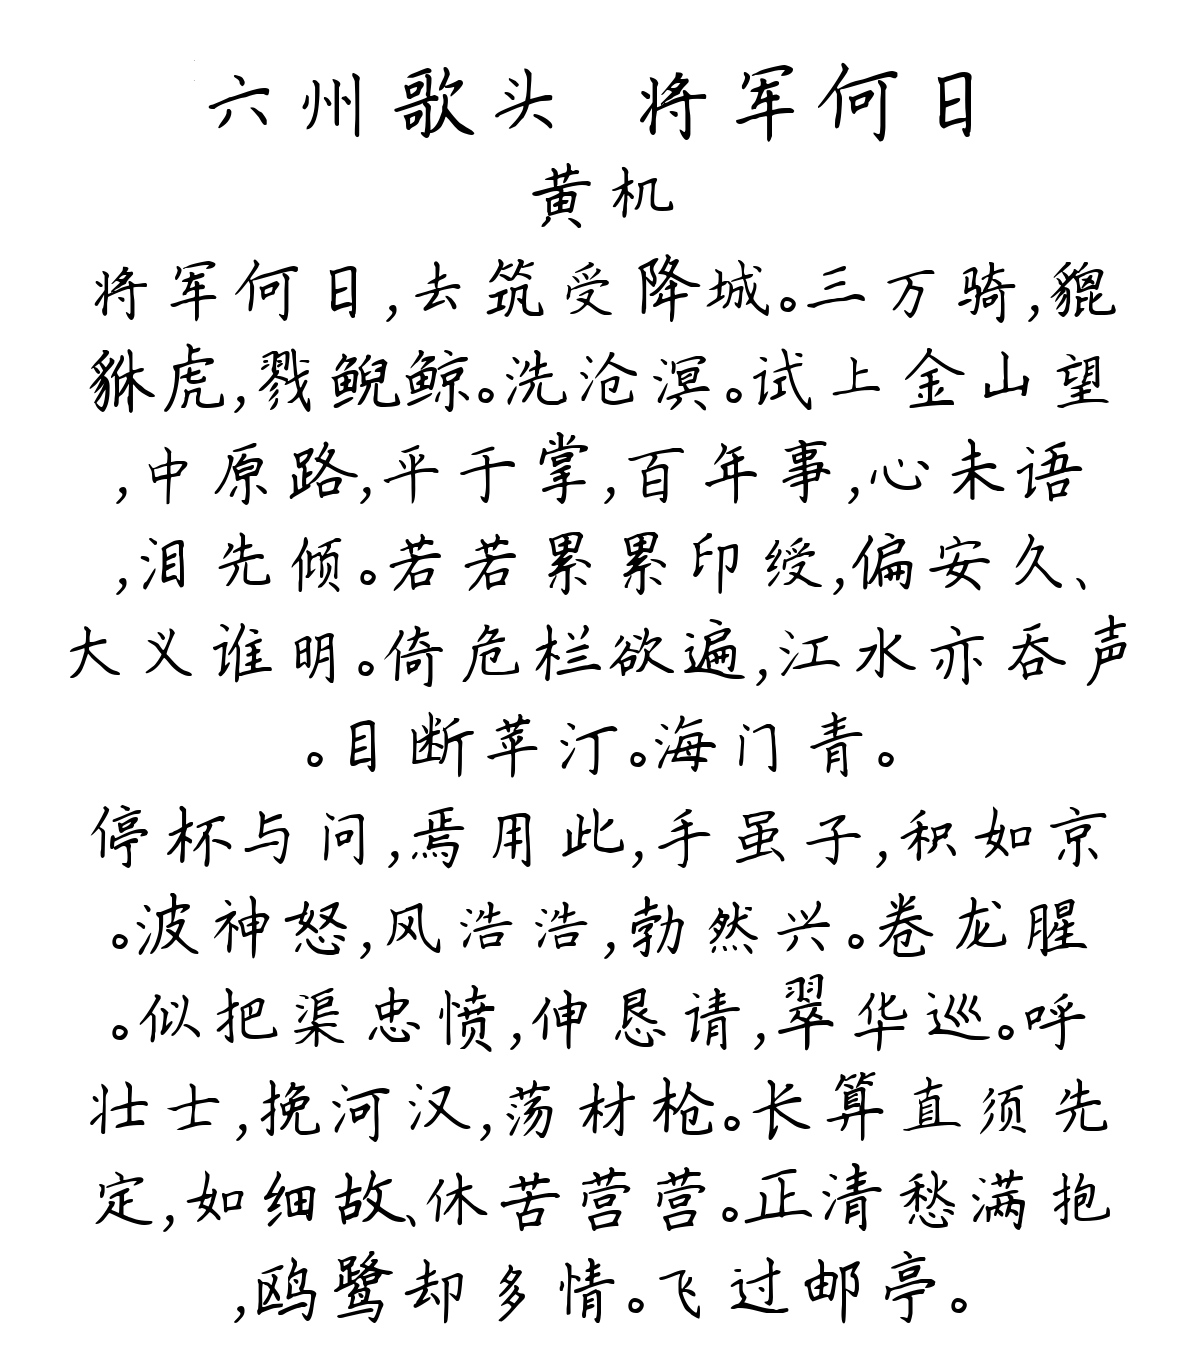 六州歌头 将军何日
黄机
将军何日,去筑受降城。三万骑,貔
貅虎,戮鲵鲸。洗沧溟。试上金山望
,中原路,平于掌,百年事,心未语
,泪先倾。若若累累印绶,偏安久、
大义谁明。倚危栏欲遍,江水亦吞声
。目断苹汀。海门青。
停杯与问,焉用此,手虽子,积如京
。波神怒,风浩浩,勃然兴。卷龙腥
。似把渠忠愤,伸恳请,翠华巡。呼
壮士,挽河汉,荡材枪。长算直须先
定,如细故、休苦营营。正清愁满抱
,鸥鹭却多情。飞过邮亭。